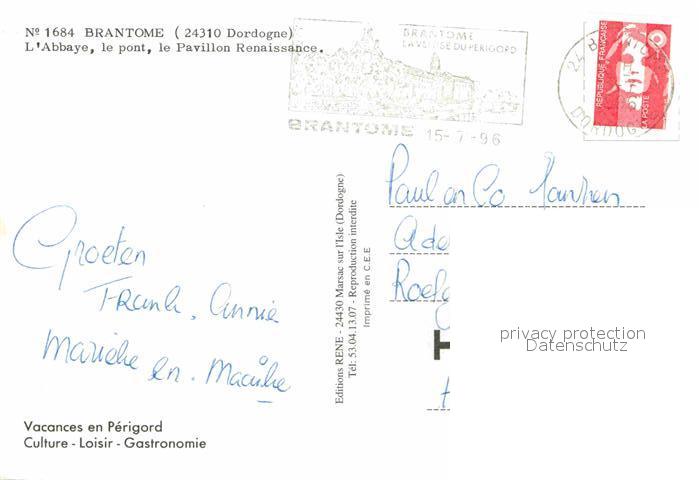 Nº 1684 BRANTOME (24310 Dordogne)
L'Abbaye, le pont, le Pavillon Renaissance.
BRANTOME
LA VENISE DU PÉRIGORD
BRANTOME 15-7-96
RÉPUBLIQUE FRANÇAISE
LA POSTE
Groeten
Frank, Annie
Marieke en
Vacances en Périgord
Culture - Loisir - Gastronomie
Editions RENE - 24430 Marsac sur l'Isle (Dordogne)
Tél: 53.04.13.07 - Reproduction interdite
Imprimé en C.E.E
Paul en Co
Ade
Roelg
privacy protection
Datenschutz